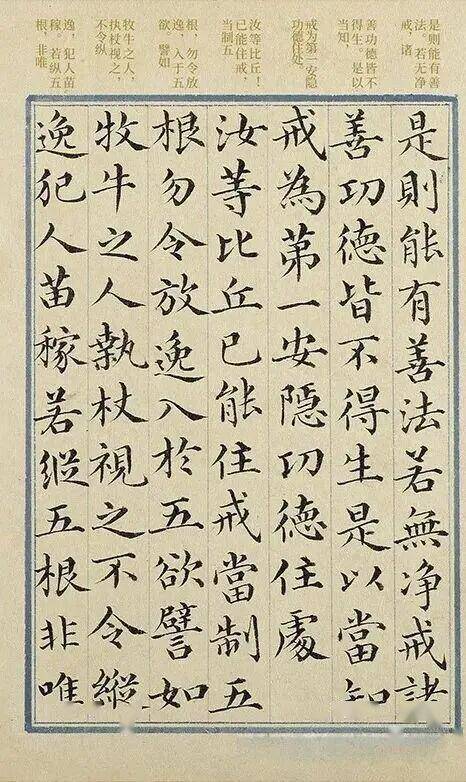 是则能有善
法。若无净
戒，诸
善功德皆不
得生。是以
当知，
戒为第一安隐
功德住处。
汝等比丘！
已能住戒，
当制五
根，勿令放
逸，入于五
欲。譬如
牧牛之人，
执杖视之，
不令纵
逸，犯人苗
稼。若纵五
根，非唯
是則能有善法若無净戒諸
善功德皆不得生是以當知
戒為第一安隱功德住處
汝等比丘已能住戒當制五
根勿令放逸入於五欲譬如
牧牛之人執杖視之不令縱
逸犯人苗稼若縱五根非唯